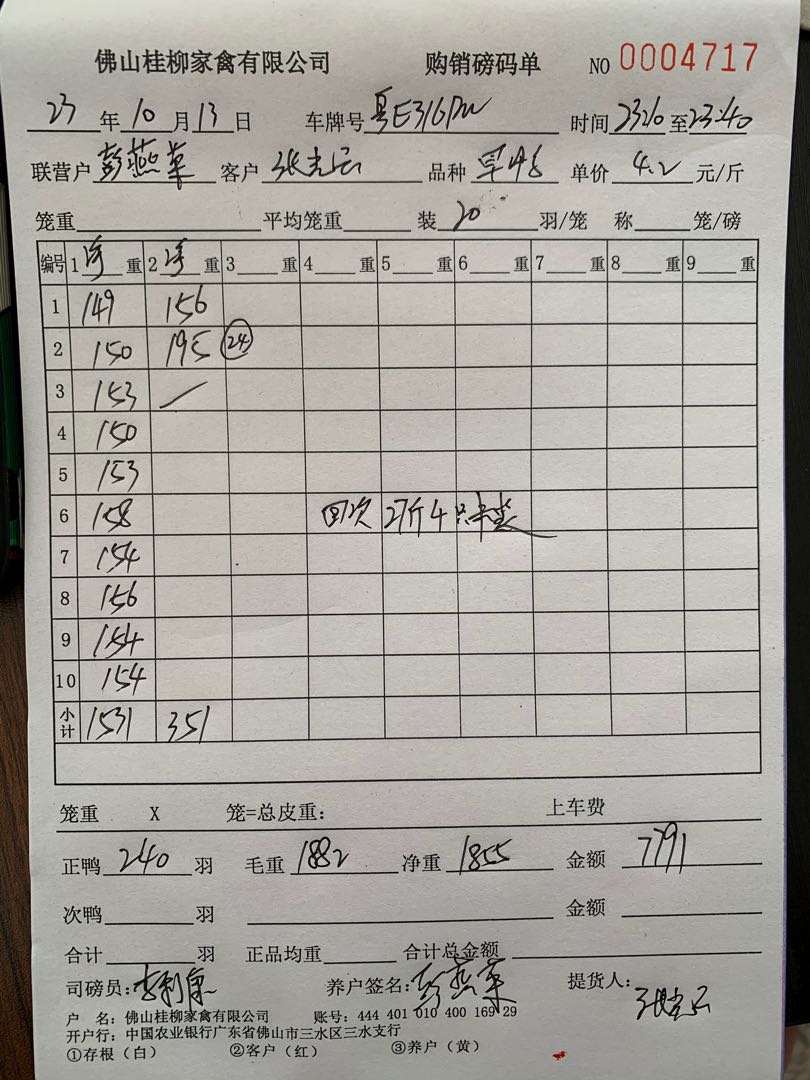 佛山桂柳家禽有限公司 购销磅码单 NO 0004717
23年10月13日 车牌号粤E316 时间2320至23:40
联营户彭燕 客户张 品种 单价4.2元/斤
笼重 平均笼重 装20羽/笼 称 笼/磅
编号 1 净 重 2 净 重 3 重 4 重 5 重 6 重 7 重 8 重 9 重
1 149 156
2 150 195 24
3 153
4 150
5 153
6 158 回次 2斤4只
7 154
8 156
9 154
10 154
小计 1531 351
笼重 X 笼=总皮重: 上车费
正鸭240羽 毛重1882 净重1855 金额7791
次鸭 羽 金额
合计 羽 正品均重 合计总金额
司磅员:李利 养户签名:彭燕 提货人:张
户 名:佛山桂柳家禽有限公司 账号:444 401 010 400 169 29
开户行:中国农业银行广东省佛山市三水区三水支行
①存根(白) ②客户(红) ③养户(黄)